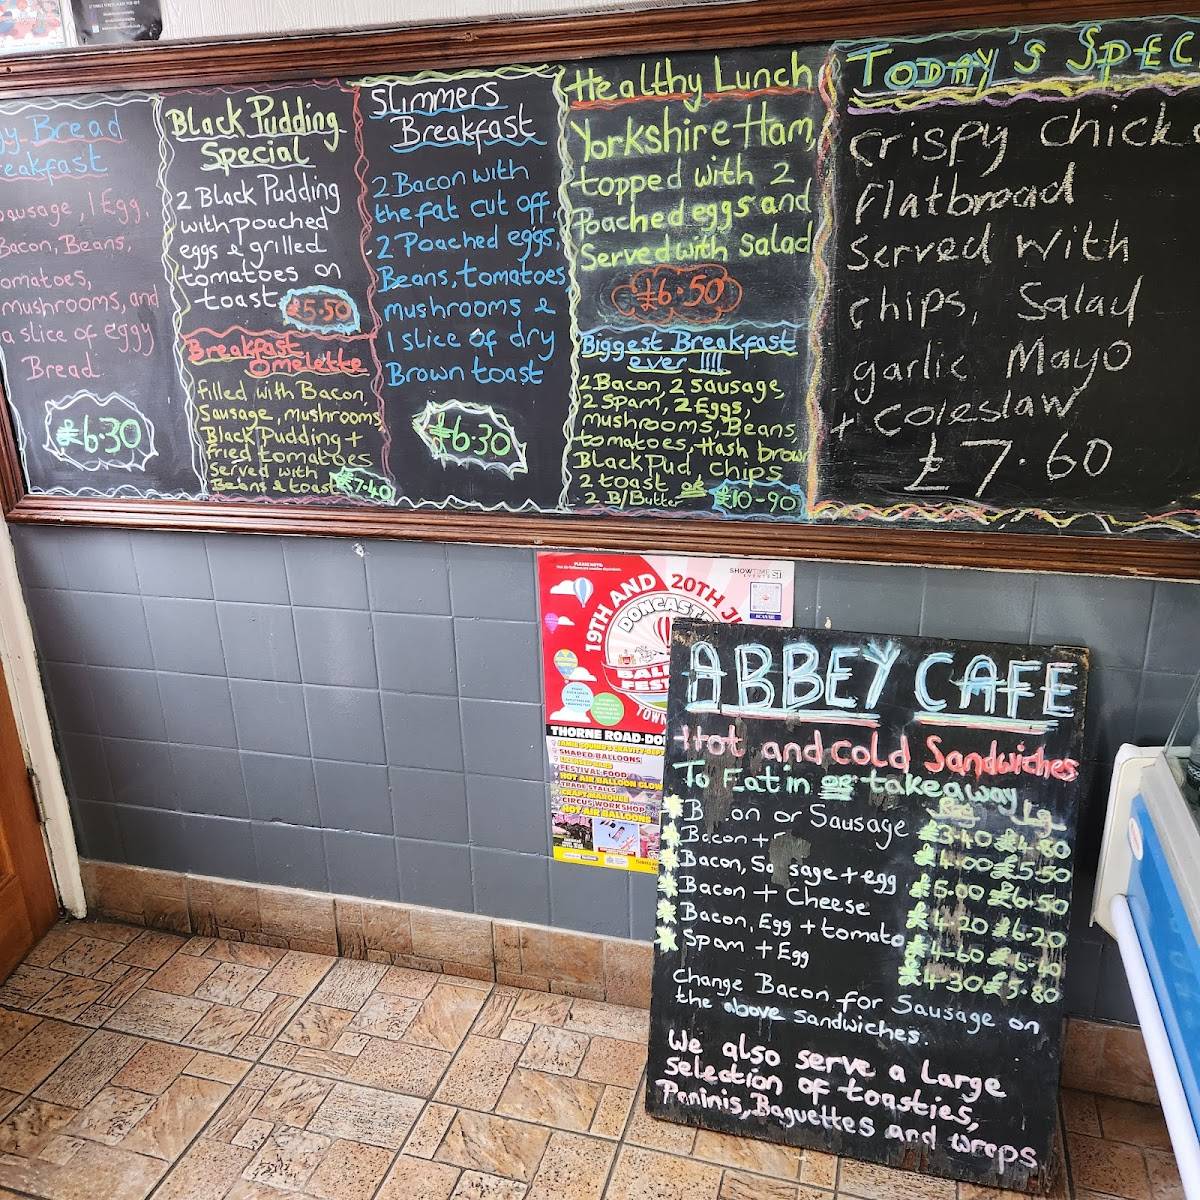 Bread
sausage, 1 Egg,
Bacon, Beans,
tomatoes,
mushrooms, and
a slice of eggy
Bread.
£6.30
Black Pudding
Special
2 Black Pudding
with poached
eggs & grilled
tomatoes on
toast.
£5.50
Breakfast
Omelette
filled with Bacon,
Sausage, mushrooms,
Black Pudding +
fried tomatoes
served with
Beans & toast
£7.40
Slimmers
Breakfast
2 Bacon with
the fat cut off,
2 Poached eggs,
Beans, tomatoes
mushrooms &
1 slice of dry
Brown toast
£6.30
Healthy Lunch
Yorkshire Ham,
topped with 2
Poached eggs and
Served with Salad
£6.50
Biggest Breakfast
ever !!!!
2 Bacon, 2 sausage,
2 Spam, 2 Eggs,
mushrooms, Beans,
tomatoes, Hash brow
Black Pud, chips
2 toast or
2 B/Butter
£10-90
TODAY'S SPEC
Crispy Chick
flatbread
Served with
chips, Salad
garlic Mayo
+ Coleslaw
£7.60
PLEASE NOTE:
SHOWTIME
EVENTS
19TH AND 20TH J
DONCASTE
BALL
FEST
TOWN
THORNE ROAD-DO
SHAPED BALLOONS
LICENSED BARS
FESTIVAL FOOD
HOT AIR BALLOON GLOW
TRADE STALLS
CRAFT MARQUEE
CIRCUS WORKSHOP
HOT AIR BALLOONS
ABBEY CAFE
Hot and cold Sandwiches
To Eat in or takeaway
Lg
B on or Sausage £3.40 £4.80
Bacon + £4.00 £5.50
Bacon, Sa sage + egg £5.00 £6.50
Bacon + Cheese £4.20 £6.20
Bacon, Egg + tomato £4.60 £6.40
Spam + Egg £4.30 £5.80
Change Bacon for Sausage on
the above sandwiches.
We also serve a Large
Selection of toasties,
Paninis, Baguettes and wraps